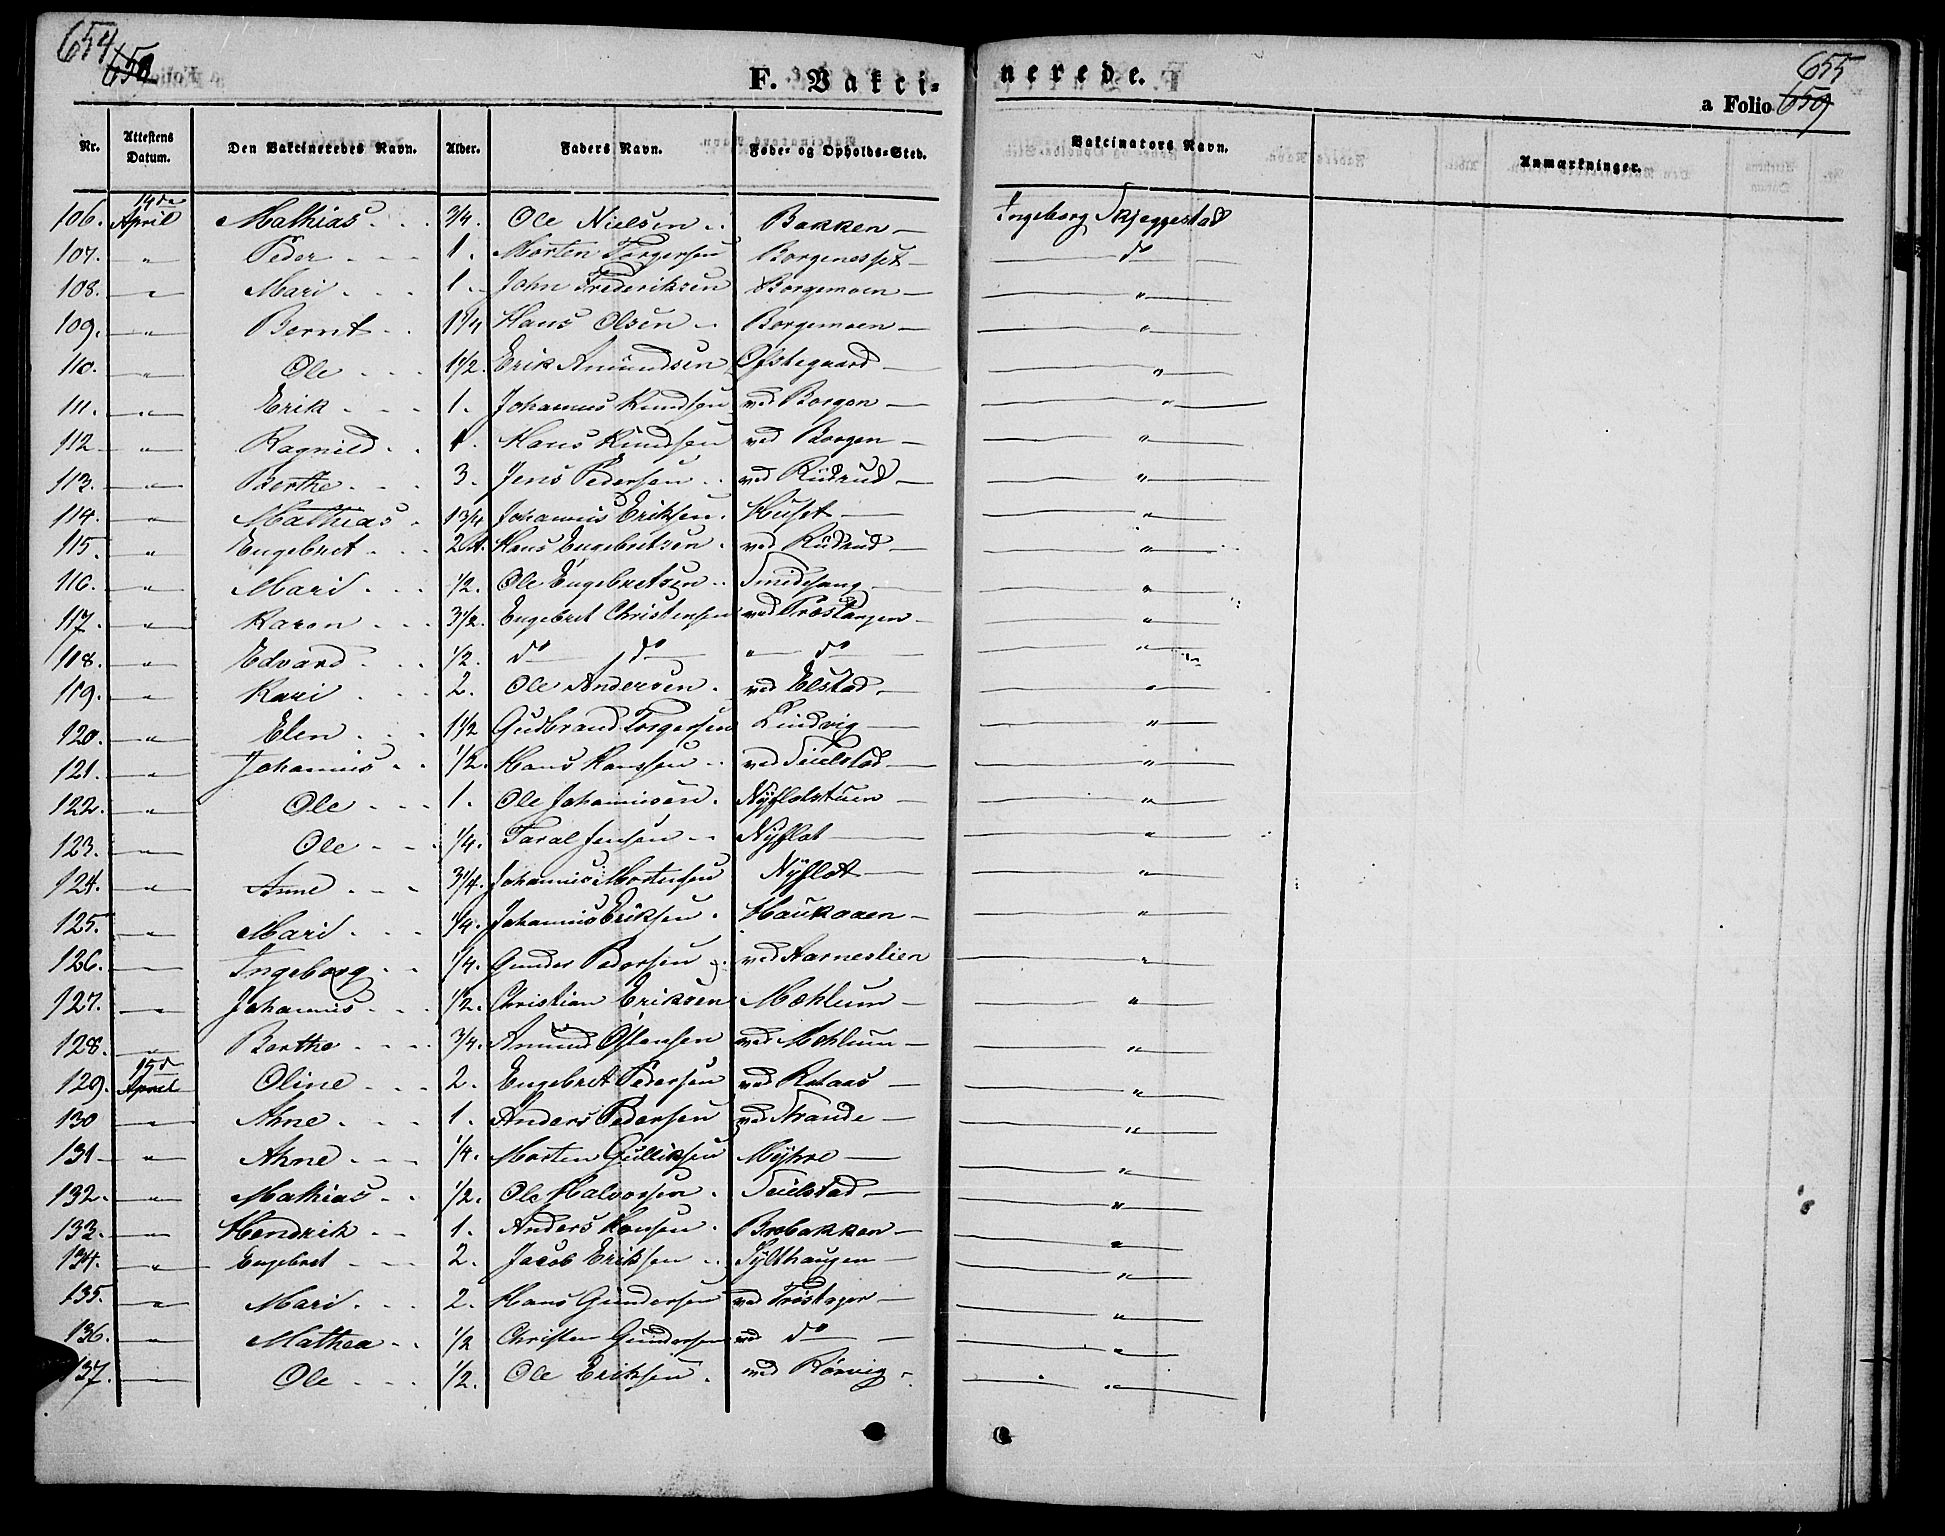 654
659
F. Vakci-
nerede.
655
a Folio 659
Nr. Attestens Datum. Den Vakcineredes Navn. Alder. Faders Navn. Føde- og Opholds-Sted. Vakcinators Navn. Anmærkninger.
106. 14de April Mathias 3/4. Ole Nielsen Bakken Ingeborg Skjeggestad
107. " Peder 1. Morten Torgersen Borgenesset do
108. " Mari 1. John Frederiksen Borgemoen "
109. " Bernt 1 1/4 Hans Olsen Borgemoen "
110. " Ole 1 1/2. Erik Amundsen Ofstegaard "
111. " Erik 1. Johannes Knudsen ved Borgen "
112 " Ragnild 1. Hans Knudsen ved Borgen "
113. " Berthe 3. Jens Pedersen ved Rudrud "
114. " Mathias 1 3/4 Johannes Eriksen Huset "
115. " Engebret Hans Engebretsen ved Rudrud "
116. " Mari 1/2. Ole Engebretsen Smidesang "
117. " Karen 3 1/2. Engebret Christensen ved Trøstagen "
118. " Edvard 1/2. do do " do "
119. " Kari 2. Ole Andersen ved Elstad "
120. " Elen 1 1/2 Gudbrand Torgersen Lindvig "
121. " Johannes 1/2. Hans Hanssen ved Teielstad "
122. " Ole 1. Ole Johannesen Nyflotstuen "
123. " Ole 1/4. Taral Jensen Nyflot "
124. " Anne 3/4. Johannes Mortensen Nyflot "
125. " Mari 1/4. Johannes Eriksen Haukaaen "
126. " Ingeborg 1/4. Gunder Pedersen ved Aarneslien "
127. " Johannes 1/2. Christian Eriksen Mæhlum "
128. " Berthe 3/4. Amund Ostensen ved Mehlum "
129. 15d April Oline 2. Engebret Pedersen ved Rolaas "
130 " Ahne 1. Anders Pedersen ved Strande "
131 " Ahne 1/4. Morten Gulliksen Myhre "
132. " Mathias 1/2. Ole Halvorsen Teielstad "
133. " Hendrik 1. Anders Hansen Brobakken "
134. " Engebret 2. Jacob Eriksen Sylthaugen "
135. " Mari 2. Hans Gundersen ved Trøstager "
136. " Mathea 1/2 Christen Gundersen ved do "
137. " Ole 1/2. Ole Eriksen ved Rørvig "